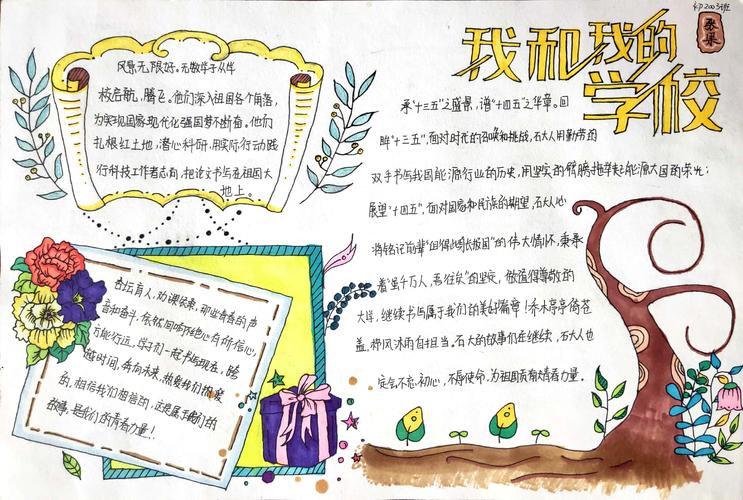 我和我的
学校
风景无限好。无数学子从件
校启航,腾飞。他们深入祖国各个角落,
为实现国家现代化强国梦不断奋。他们
扎根红土地,潜心科研,用实际行动践
行科技工作者志向,把论文书写在祖国大
地上。
杏坛育人,功课
音和奋斗,依然回响
时间,奔向未来,
的,相信我们相信的,这是属于我们的
故事,是我们的青春力量!
承"十三五"之盛景,谱"十四五"之华章。回
眸"十三五",面对时代的召唤和挑战,石大人用勤劳的
双手书写我国能源行业的历史,用坚实的臂膀托举起能源大国的荣光;
展望"十四五",面对国家和民族的期望,石大人必
将铭记前辈"但得此身长报国"的伟大情怀,秉承
着"虽千万人,吾往矣"的坚定,做值得尊敬的
大学,继续书写属于我们的美好篇章!乔木亭亭倚苍
盖,栉风沐雨自担当。石大的故事仍在继续,石大人也
定会不忘初心,不辱使命,为祖国贡献青春力量。